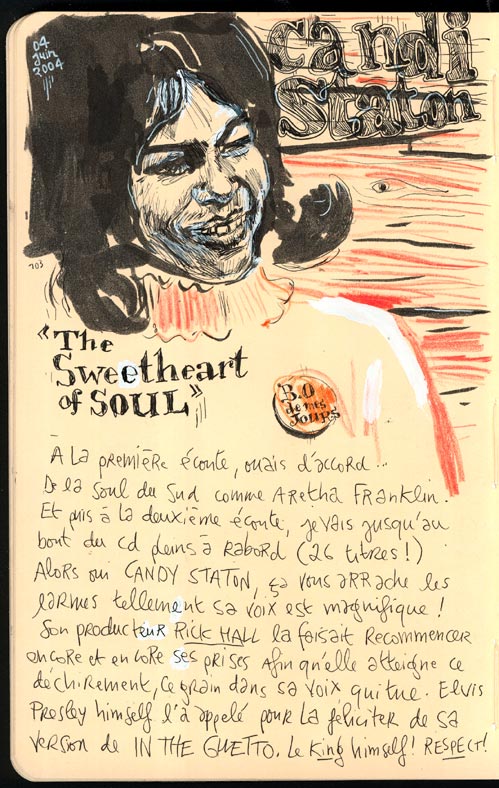 04
juin
2004
Candi
Staton
703
"The
Sweetheart
of SOUL"
B.O
de mes
Jours
À La première écoute, ouais d'accord...
De la soul du Sud comme Aretha Franklin.
Et puis à la deuxième écoute, je vais jusqu'au
bout du cd pleins à Rabord (26 titres!)
Alors oui CANDY STATON, ça vous arrache les
larmes tellement sa voix est magnifique !
Son producteur Rick HALL la faisait Recommencer
encore et encore ses prises afin qu'elle atteigne ce
déchirement, ce grain dans sa voix qui tue. Elvis
Presley himself l'à appelé pour La féliciter de sa
version de IN THE GUETTO. Le King himself! RESPECT!